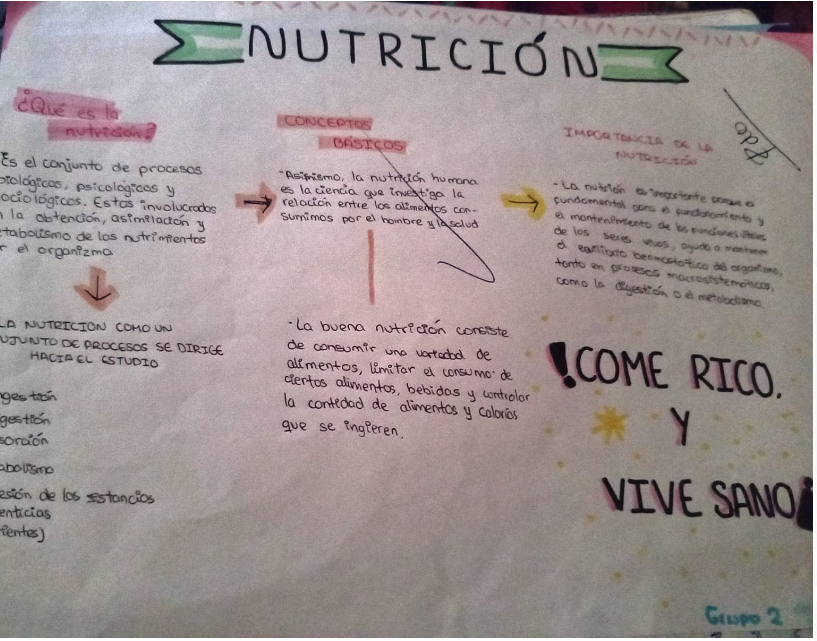 NUTRICIÓN
¿Qué es la
nutrición?
Es el conjunto de procesos
biológicos, psicológicos y
ociológicos. Estos involucrados
n la obtención, asimilación y
etabolismo de los nutrimientos
r el organizmo
LA NUTRICION COMO UN
NJUNTO DE PROCESOS SE DIRIGE
HACIA EL ESTUDIO
gestión
gestión
sorción
abolismo
esión de los sstancios
enticias
ientes)
CONCEPTOS
BÁSICOS
-Asimismo, la nutrición humana
es la ciencia que investiga la
relación entre los alimentos con-
sumimos por el hombre y la salud
-La buena nutrición consiste
de consumir una variedad de
alimentos, limitar el consumo de
ciertos alimentos, bebidas y controlar
la cantidad de alimentos y calorías
que se ingieren.
IMPORTANCIA DE LA
NUTRICIÓN
-La nutrión es importante porque es
fundamental para el fundionamiento y
el mantenimiento de las funciones
de los seres vivos, ayuda a mantener
el equilibrio del organismo,
tanto en procesos macrosistemáticos,
como la digestión o el metabolismo.
¡COME RICO.
Y
VIVE SANO!
Grupo 2